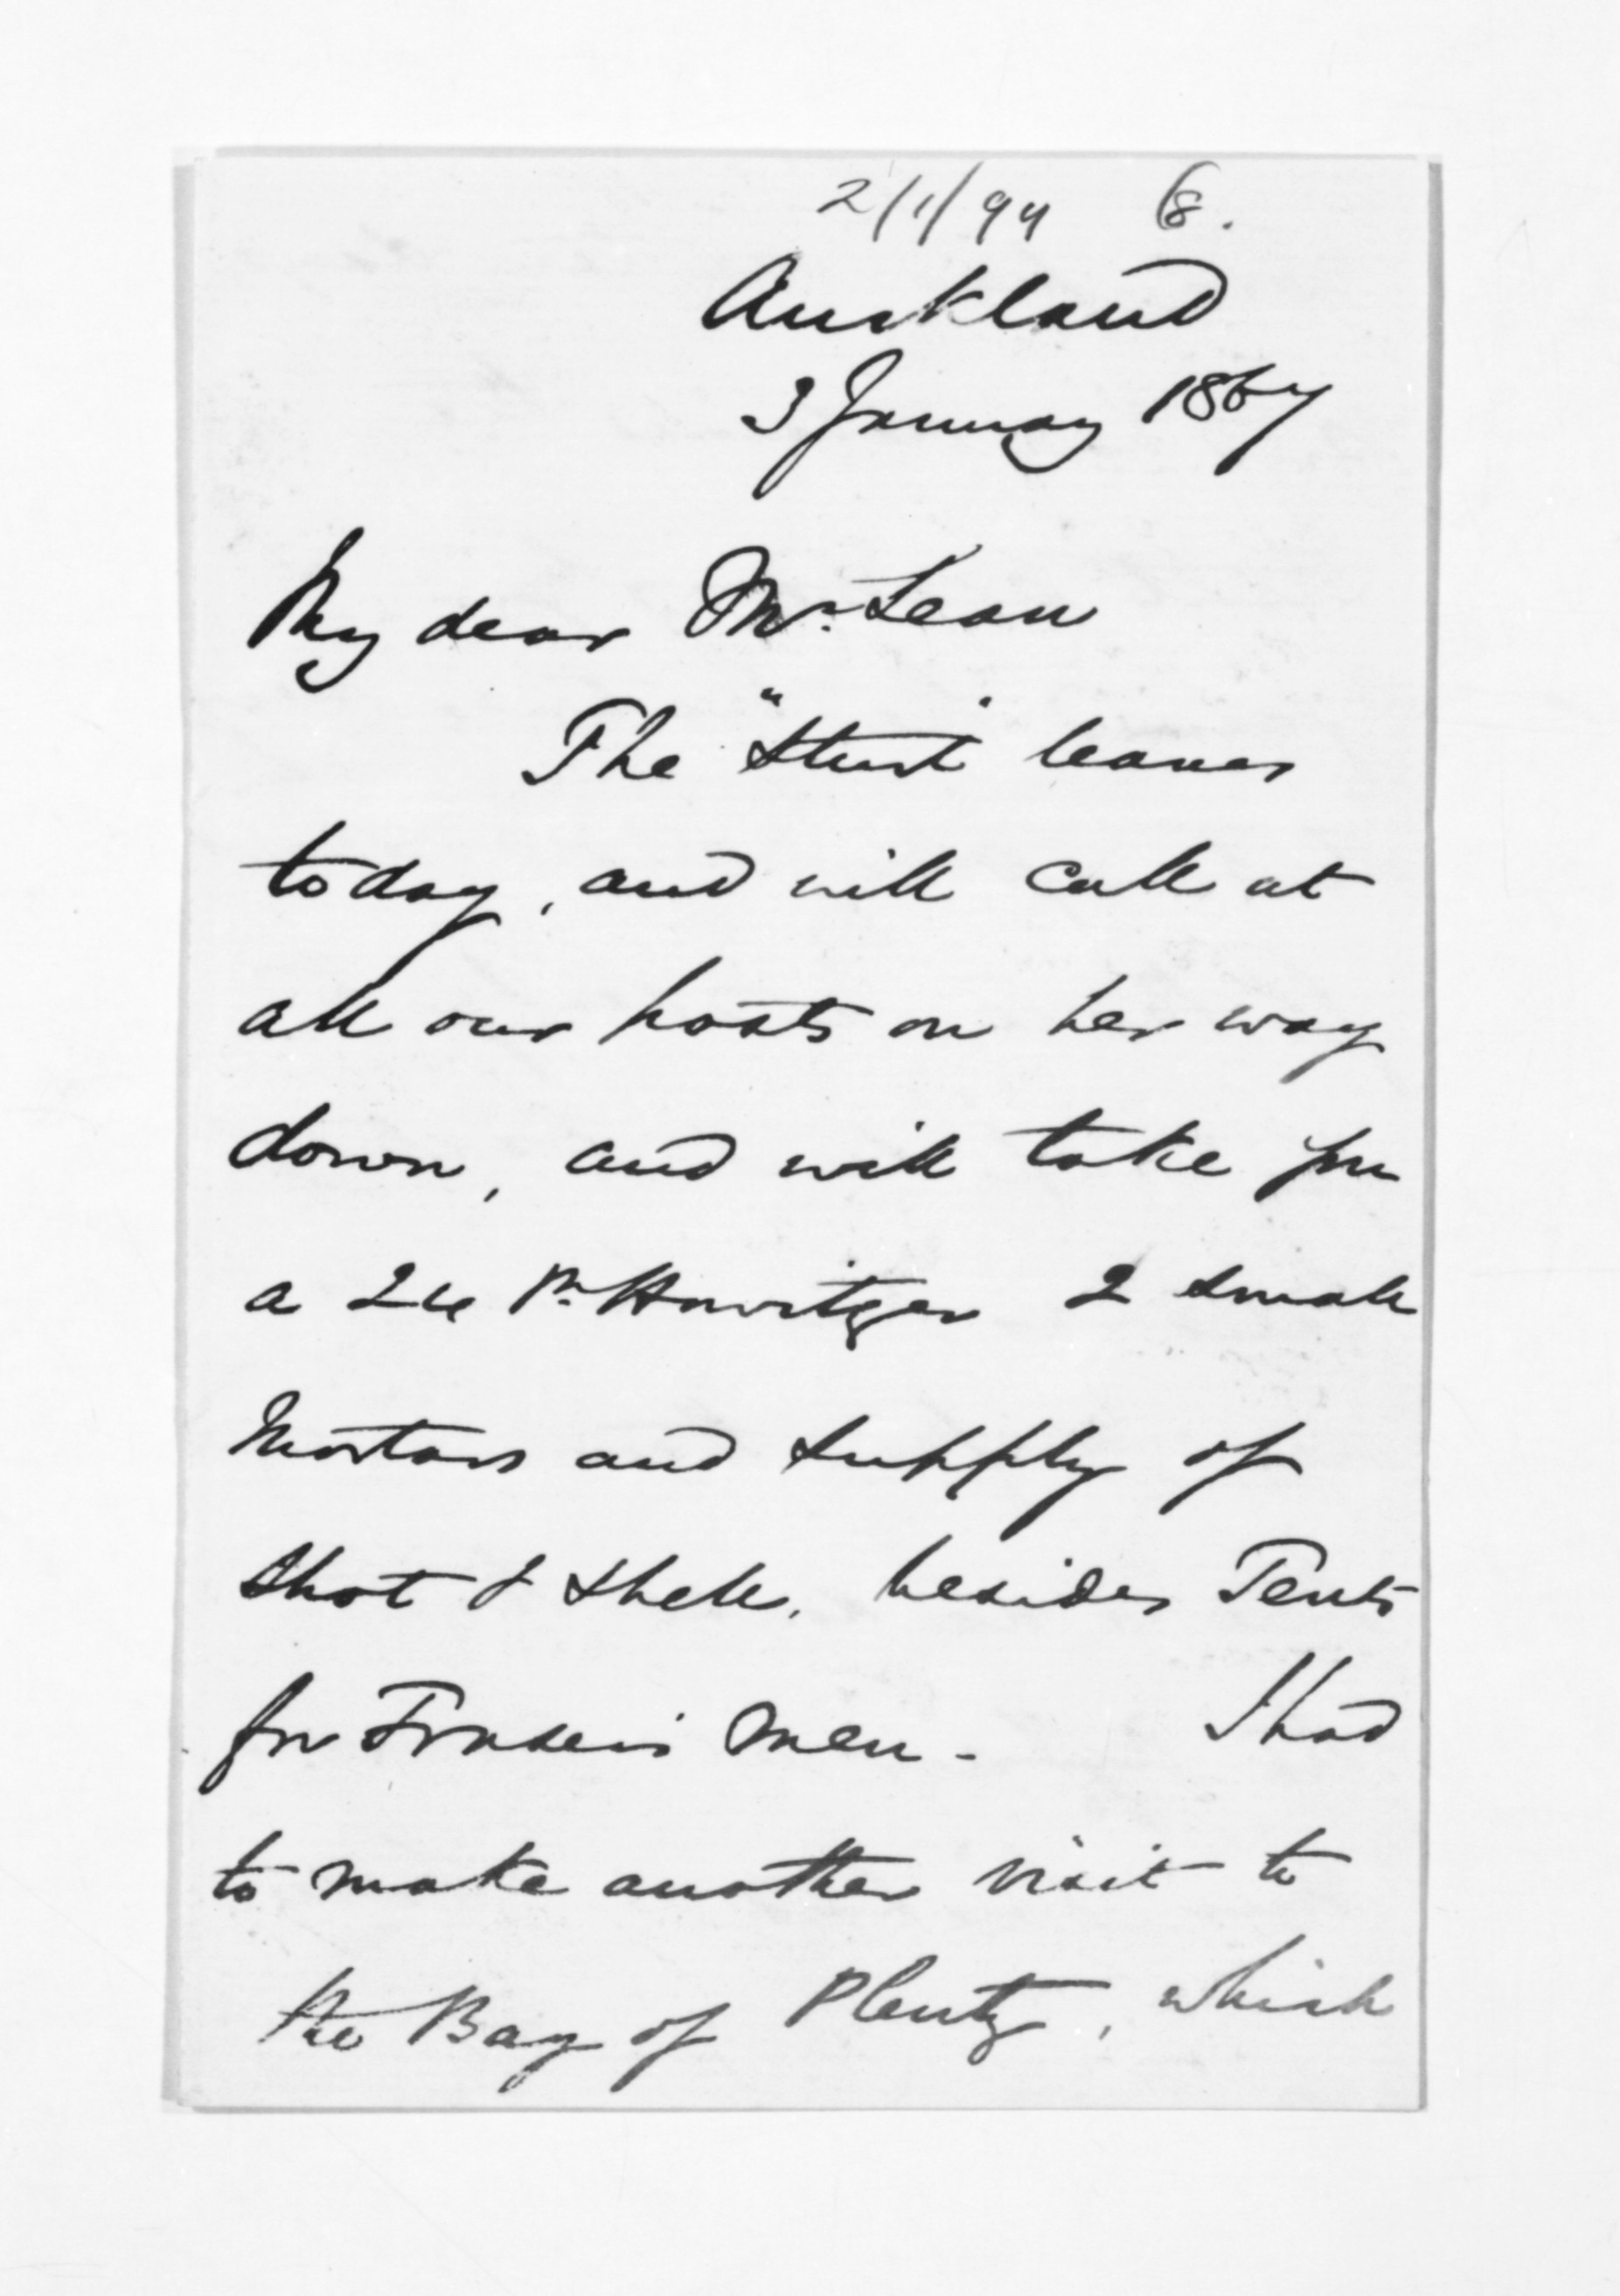 2/1/94 68.
Auckland
3 January 1867
My dear McLean
The "Sturt" leaves
today, and will call at
all our posts on her way
down, and will take you
a 24 Pr. Howitzer 2 small
Mortars and supply of
shot & shell, besides Tents
for Fraser's men - I had
to make another visit to
the Bay of Plenty, which